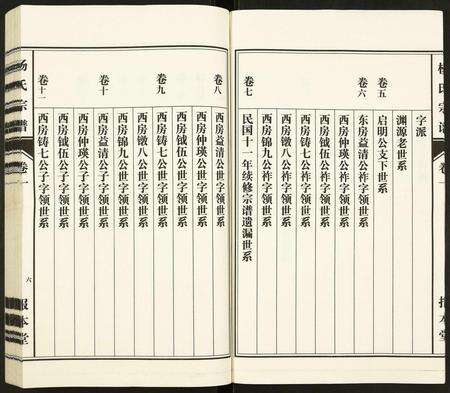 杨氏宗谱 卷一 报本堂
字派
渊源老世系
卷五 启明公支下世系
卷六 东房益清公祚字领世系
西房仲瑛公祚字领世系
西房钺伍公祚字领世系
西房铸七公祚字领世系
西房镦八公祚字领世系
西房锦九公祚字领世系
卷七 民国十一年续修宗谱遗漏世系
卷八 西房益清公世字领世系
西房仲瑛公世字领世系
西房钺伍公世字领世系
卷九 西房铸七公世字领世系
西房镦八公世字领世系
西房锦九公世字领世系
卷十 西房益清公子字领世系
西房仲瑛公子字领世系
西房钺伍公子字领世系
卷十一 西房铸七公子字领世系
杨氏宗谱 卷一 六 报本堂